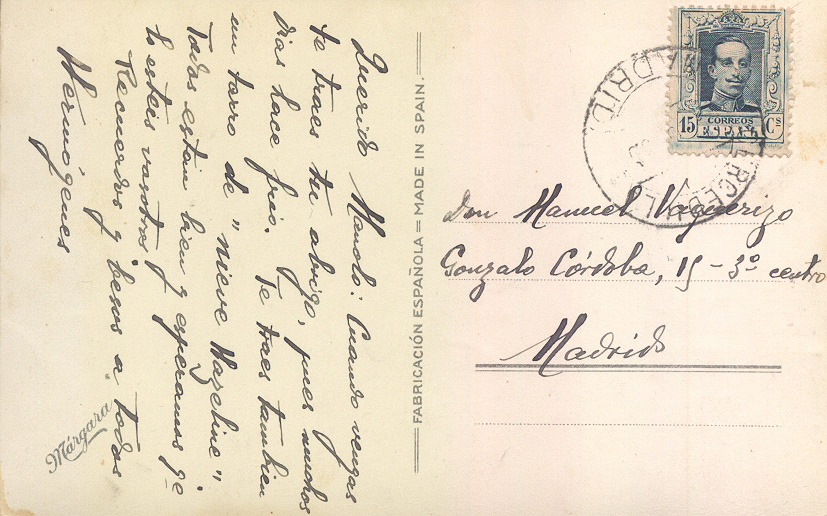 Querido Manolo: Cuando vengas
te traes tu abrigo, pues muchos
dias hace frio. Te traes tambien
un tarro de "nieve Hazeline"
Todos estan bien y esperamos qe
lo esteis vosotros.
Recuerdos y besos a todos
Hermógenes
Márgara
FABRICACIÓN ESPAÑOLA = MADE IN SPAIN.
CORREOS
15 Cs
ESPAÑA
MADRID
Don Manuel Vaquerizo
Gonzalo Córdoba, 15 - 3º centro
Madrid